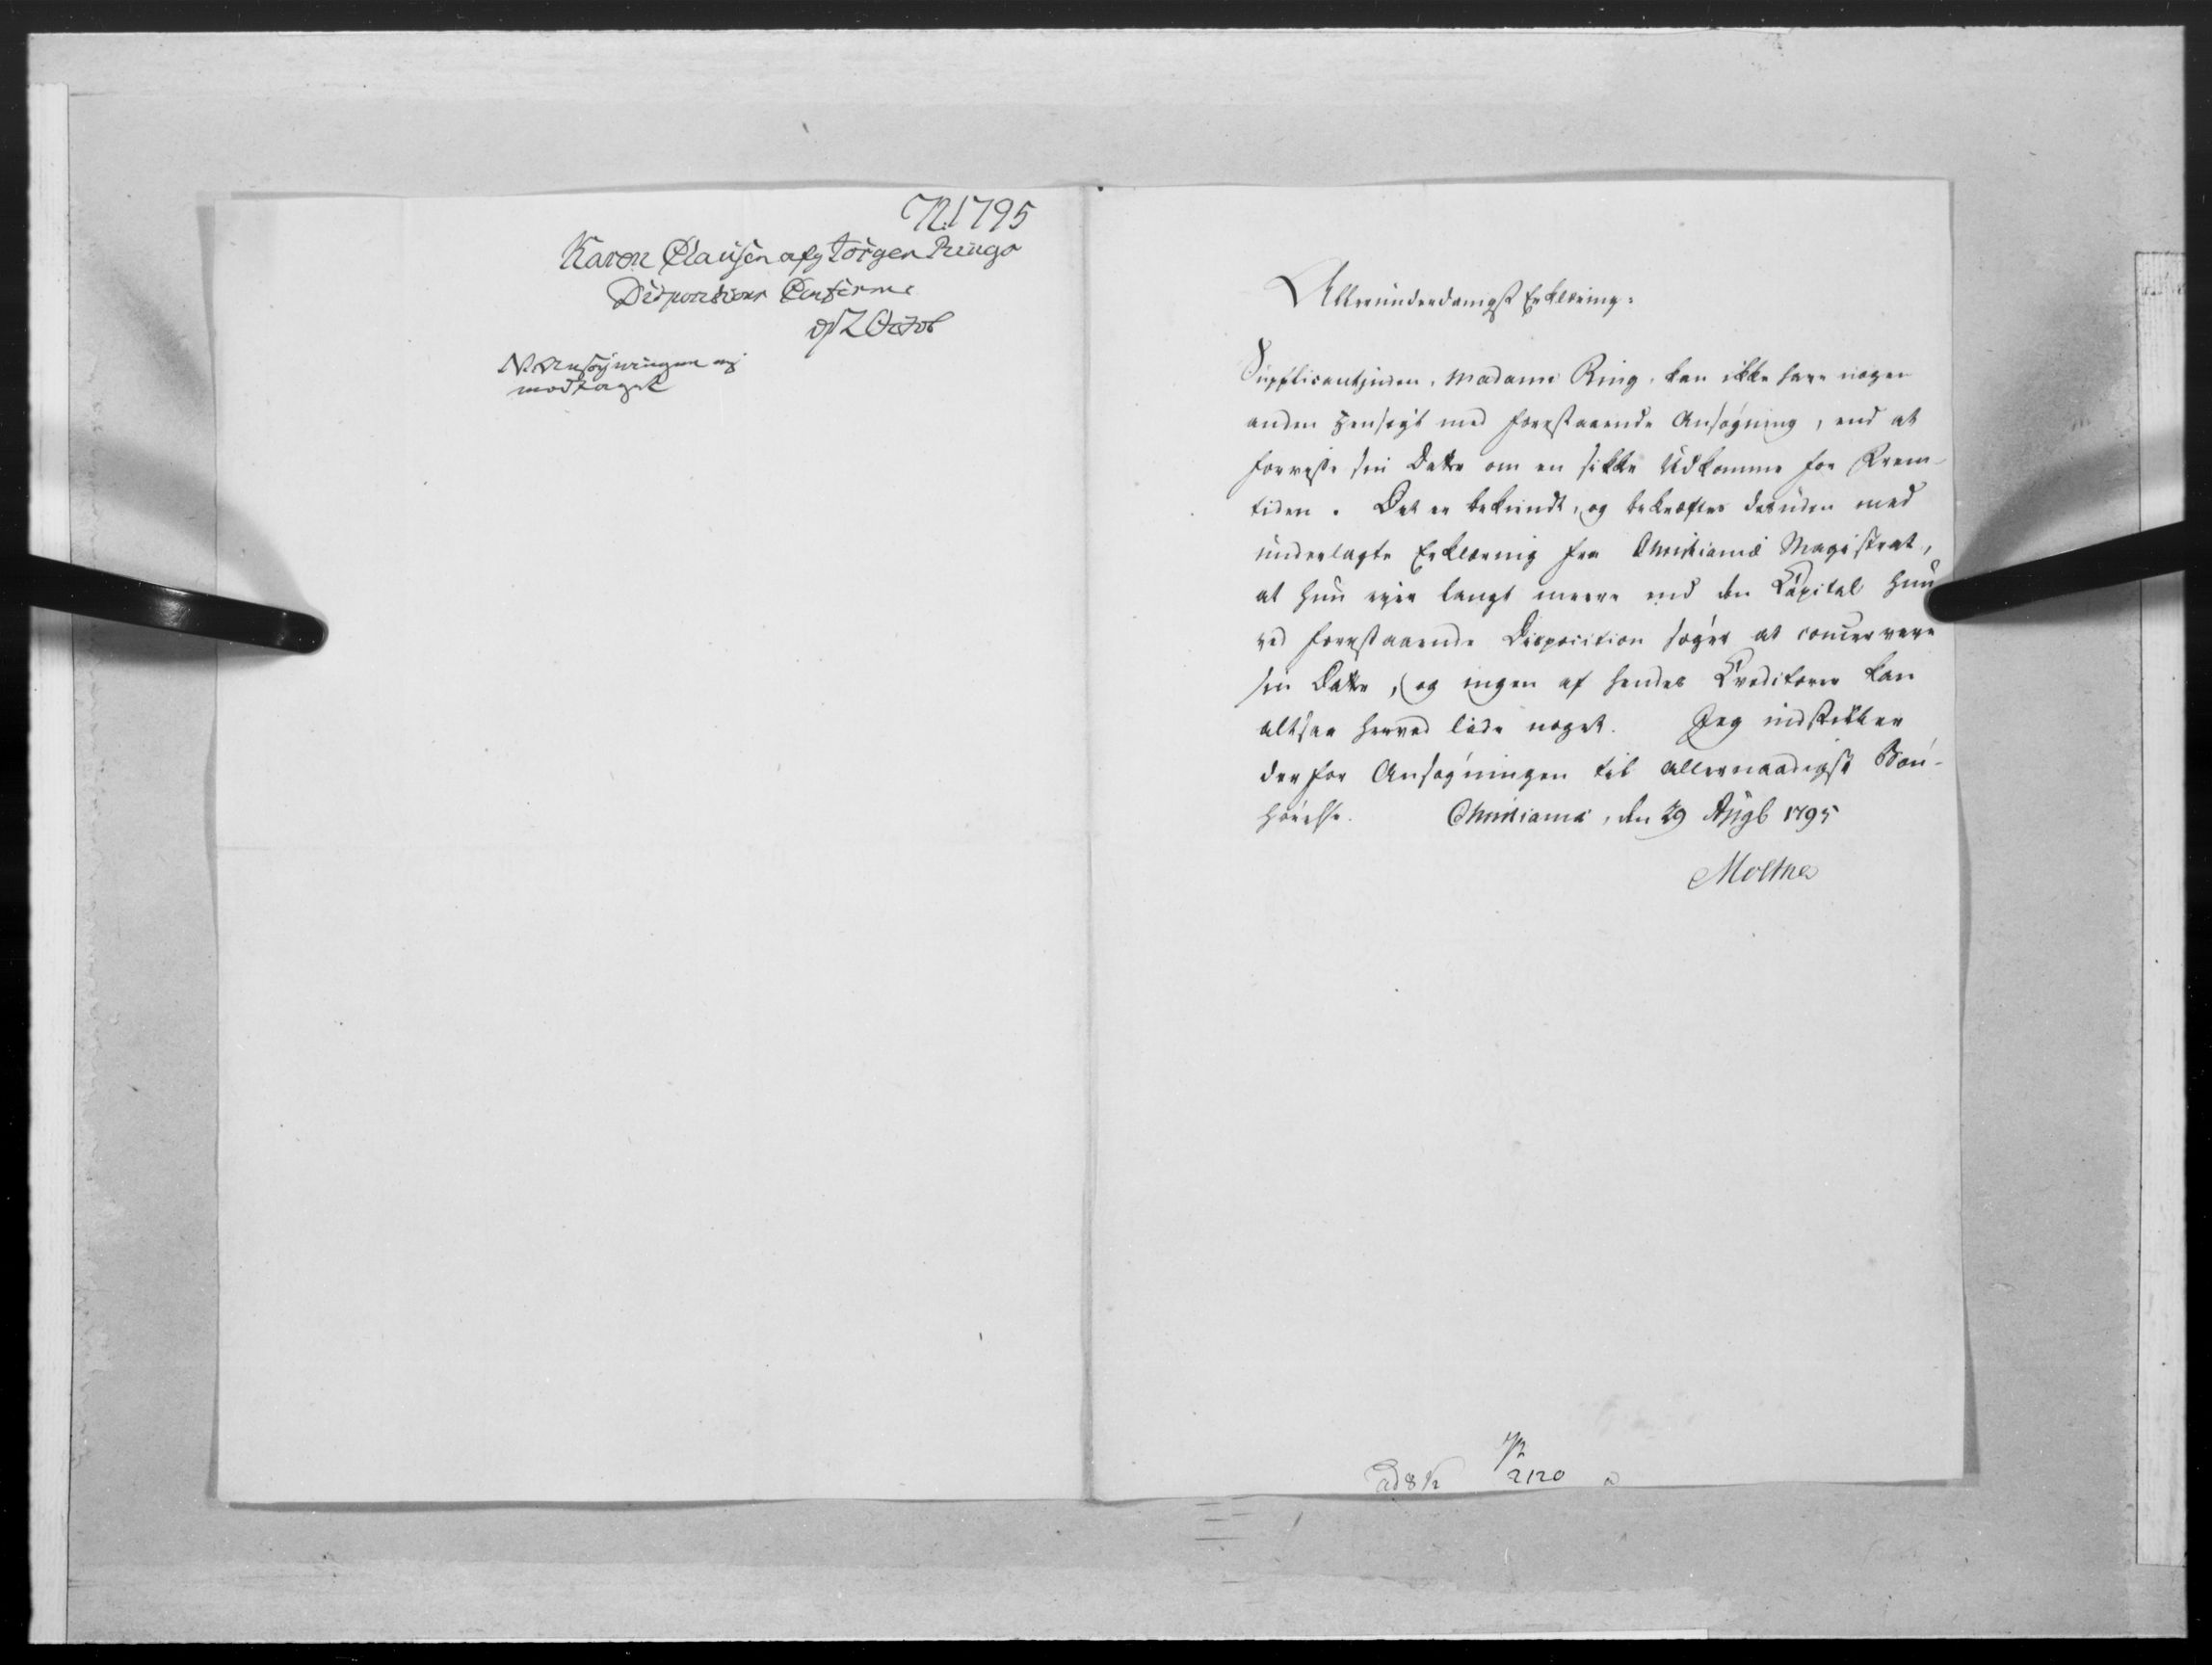 N. 1795
Karen Clausen afg Jörgen Rings
Dispositions Confirm.
d/ 2 Octob
NB. Ansøgningen ej
modtaget
Allerunderdanigst Erklæring:
Supplicantinden, Madame Ring, kan ikke have nogen
anden Hensigt med forestaaende Ansøgning, end at
forvisse sin Datter om en sikker Udkomme for Frem-
tiden. Det er bekiendt, og bekræftes desuden med
underlagte Erklæring fra Christiania Magistrat,
at hun eyer langt meere end den Capital hun
ved forestaaende Disposition søger at conservere
sin Datter, og ingen af hendes Creditorer kan
altsaa herved lide noget. Jeg indstiller
derfor Ansøgningen til allernaadigst Bøn-
hørelse. Christiania, den 29 Augb 1795
Moltke
ad 8 1/2
2120